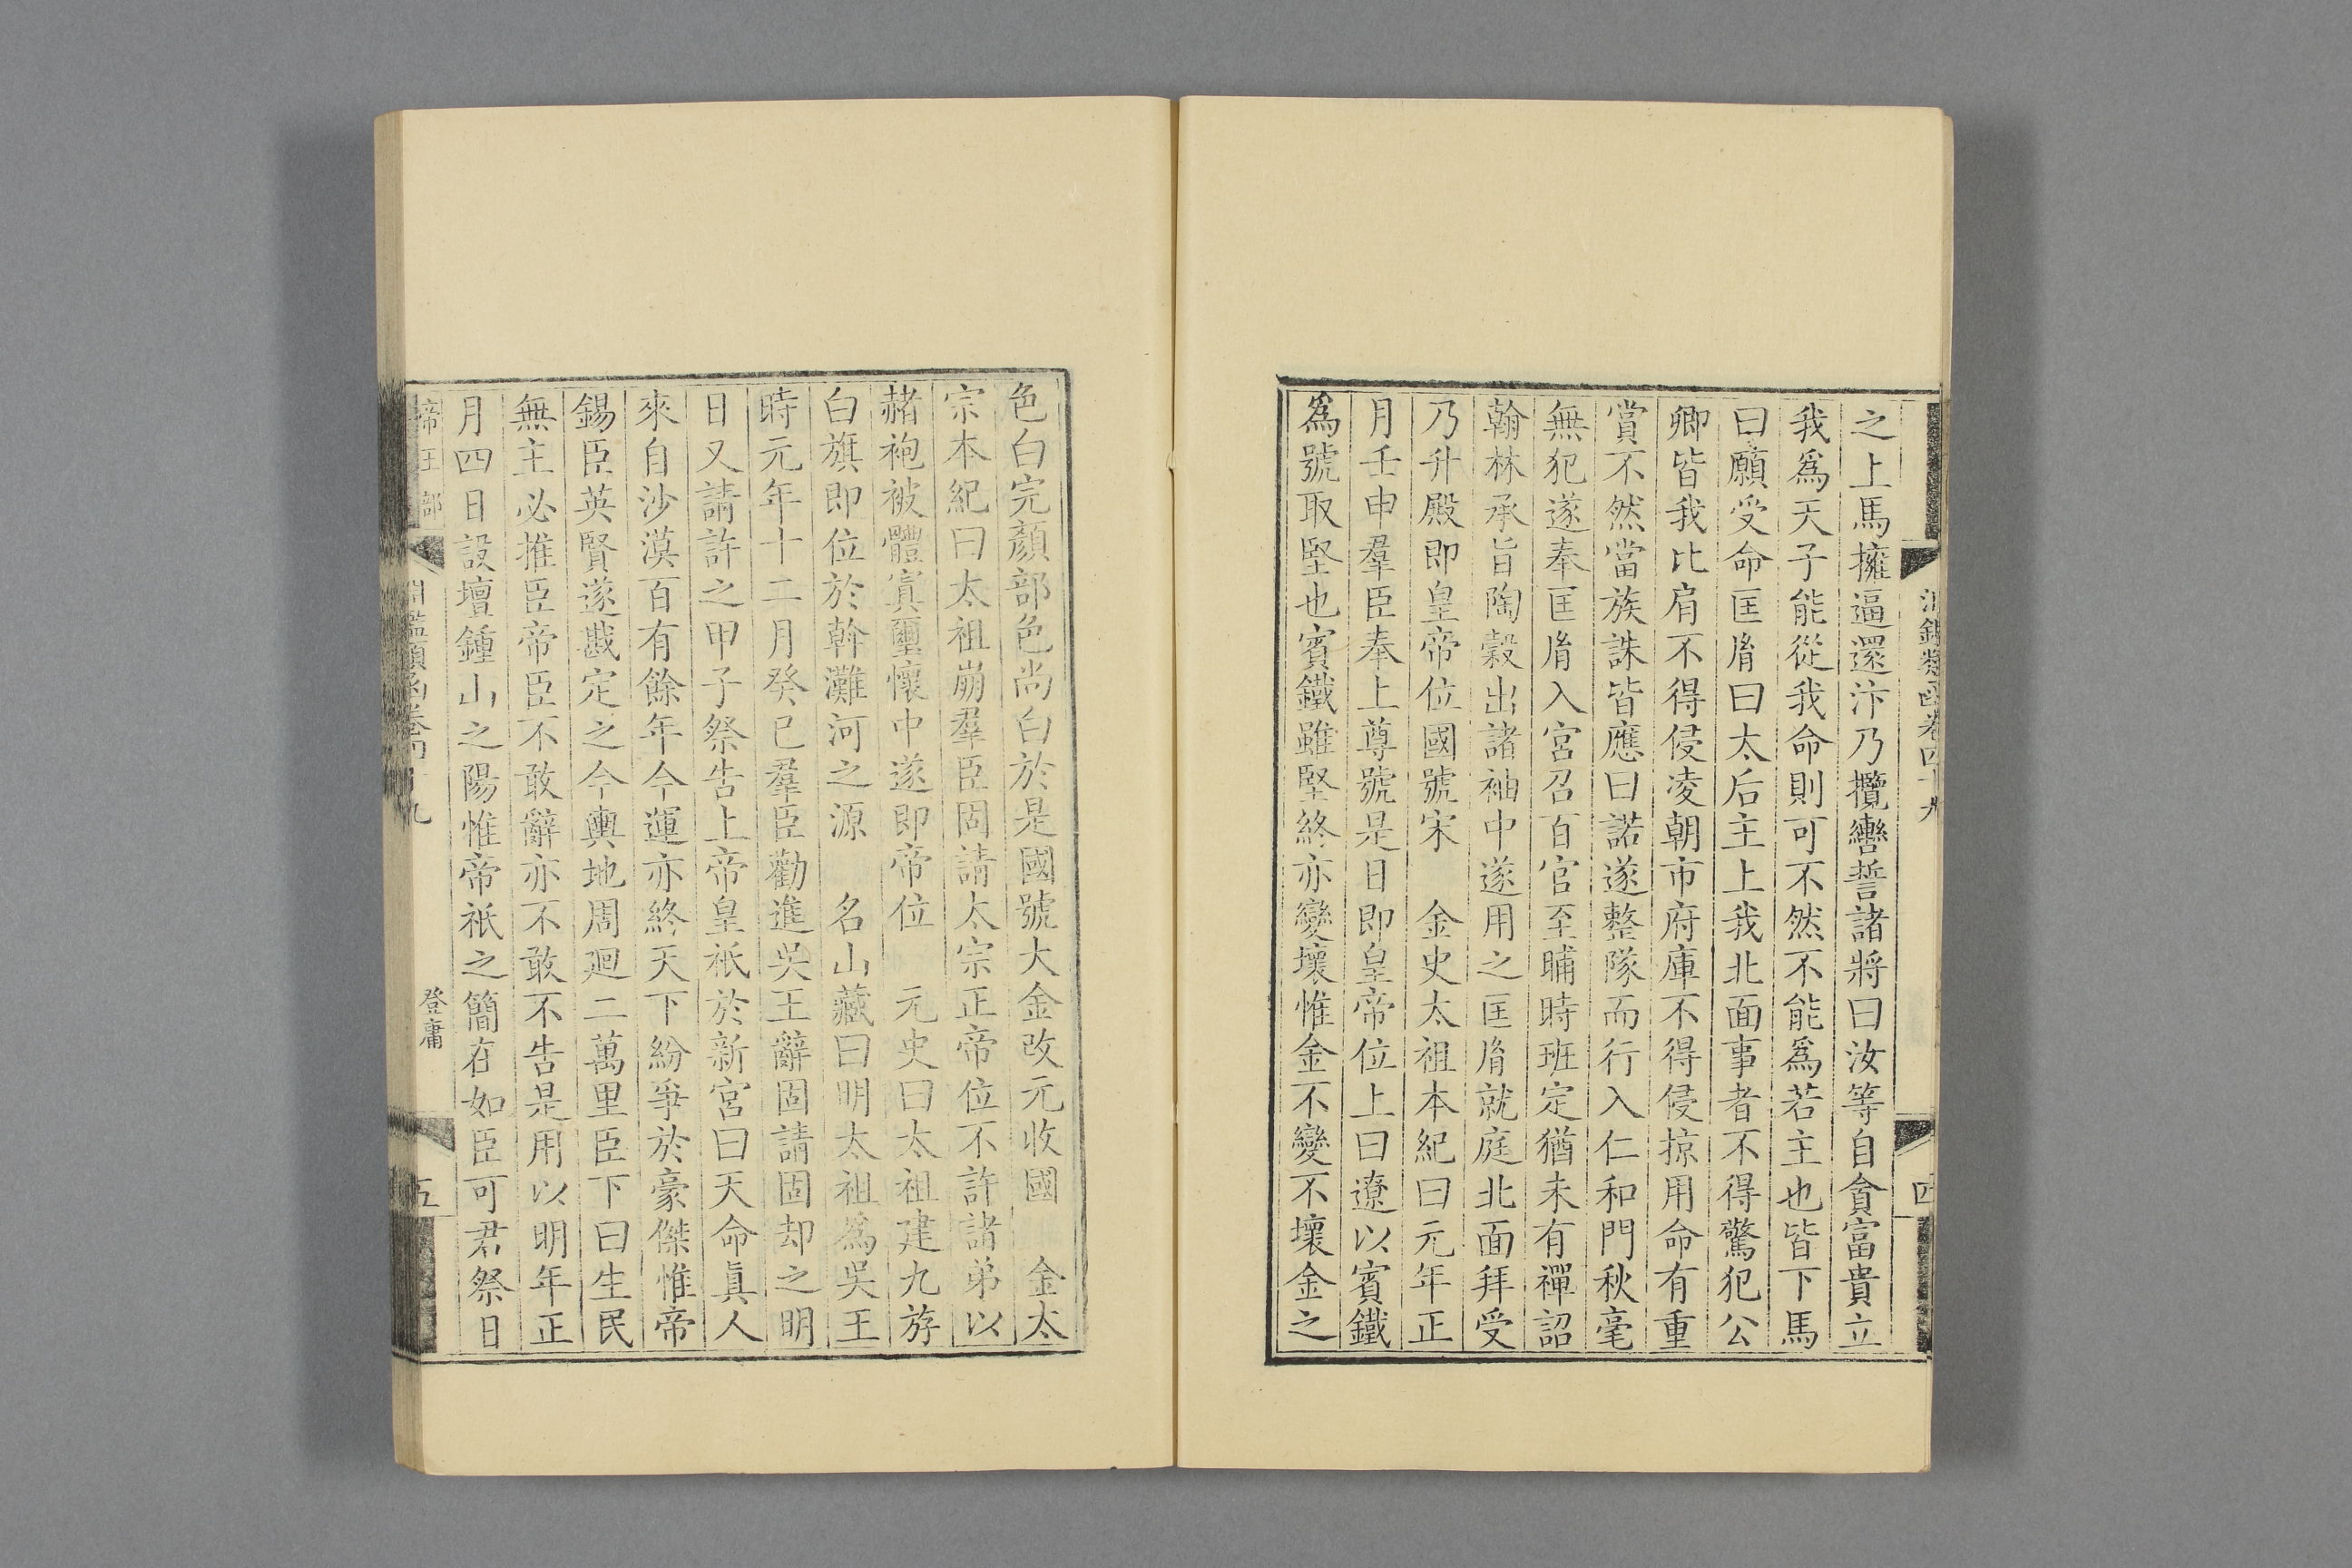 淵鑑類函卷四十九
四
之上馬擁逼還汴乃攬轡誓諸將曰汝等自貪富貴立
我爲天子能從我命則可不然不能爲若主也皆下馬
曰願受命匡胤曰太后主上我北面事者不得驚犯公
卿皆我比肩不得侵凌朝市府庫不得侵掠用命有重
賞不然當族誅皆應曰諾遂整隊而行入仁和門秋毫
無犯遂奉匡胤入宮召百官至晡時班定猶未有禪詔
翰林承旨陶穀出諸袖中遂用之匡胤就庭北面拜受
乃升殿即皇帝位國號宋　金史太祖本紀曰元年正
月壬申羣臣奉上尊號是日即皇帝位上曰遼以賓鐵
爲號取堅也賓鐵雖堅終亦變壞惟金不變不壞金之
色白完顏部色尚白於是國號大金改元收國　金太
宗本紀曰太祖崩羣臣固請太宗正帝位不許諸弟以
赭袍被體寘璽懷中遂即帝位　元史曰太祖建九斿
白旗即位於斡灘河之源　名山藏曰明太祖爲吳王
時元年十二月癸巳羣臣勸進吳王辭固請固却之明
日又請許之甲子祭告上帝皇祇於新宮曰天命眞人
來自沙漠百有餘年今運亦終天下紛爭於豪傑惟帝
錫臣英賢遂戡定之今輿地周廻二萬里臣下曰生民
無主必推臣帝臣不敢辭亦不敢不告是用以明年正
月四日設壇鍾山之陽惟帝祇之簡在如臣可君祭日
帝王部
淵鑑類函卷四十九
登庸
五